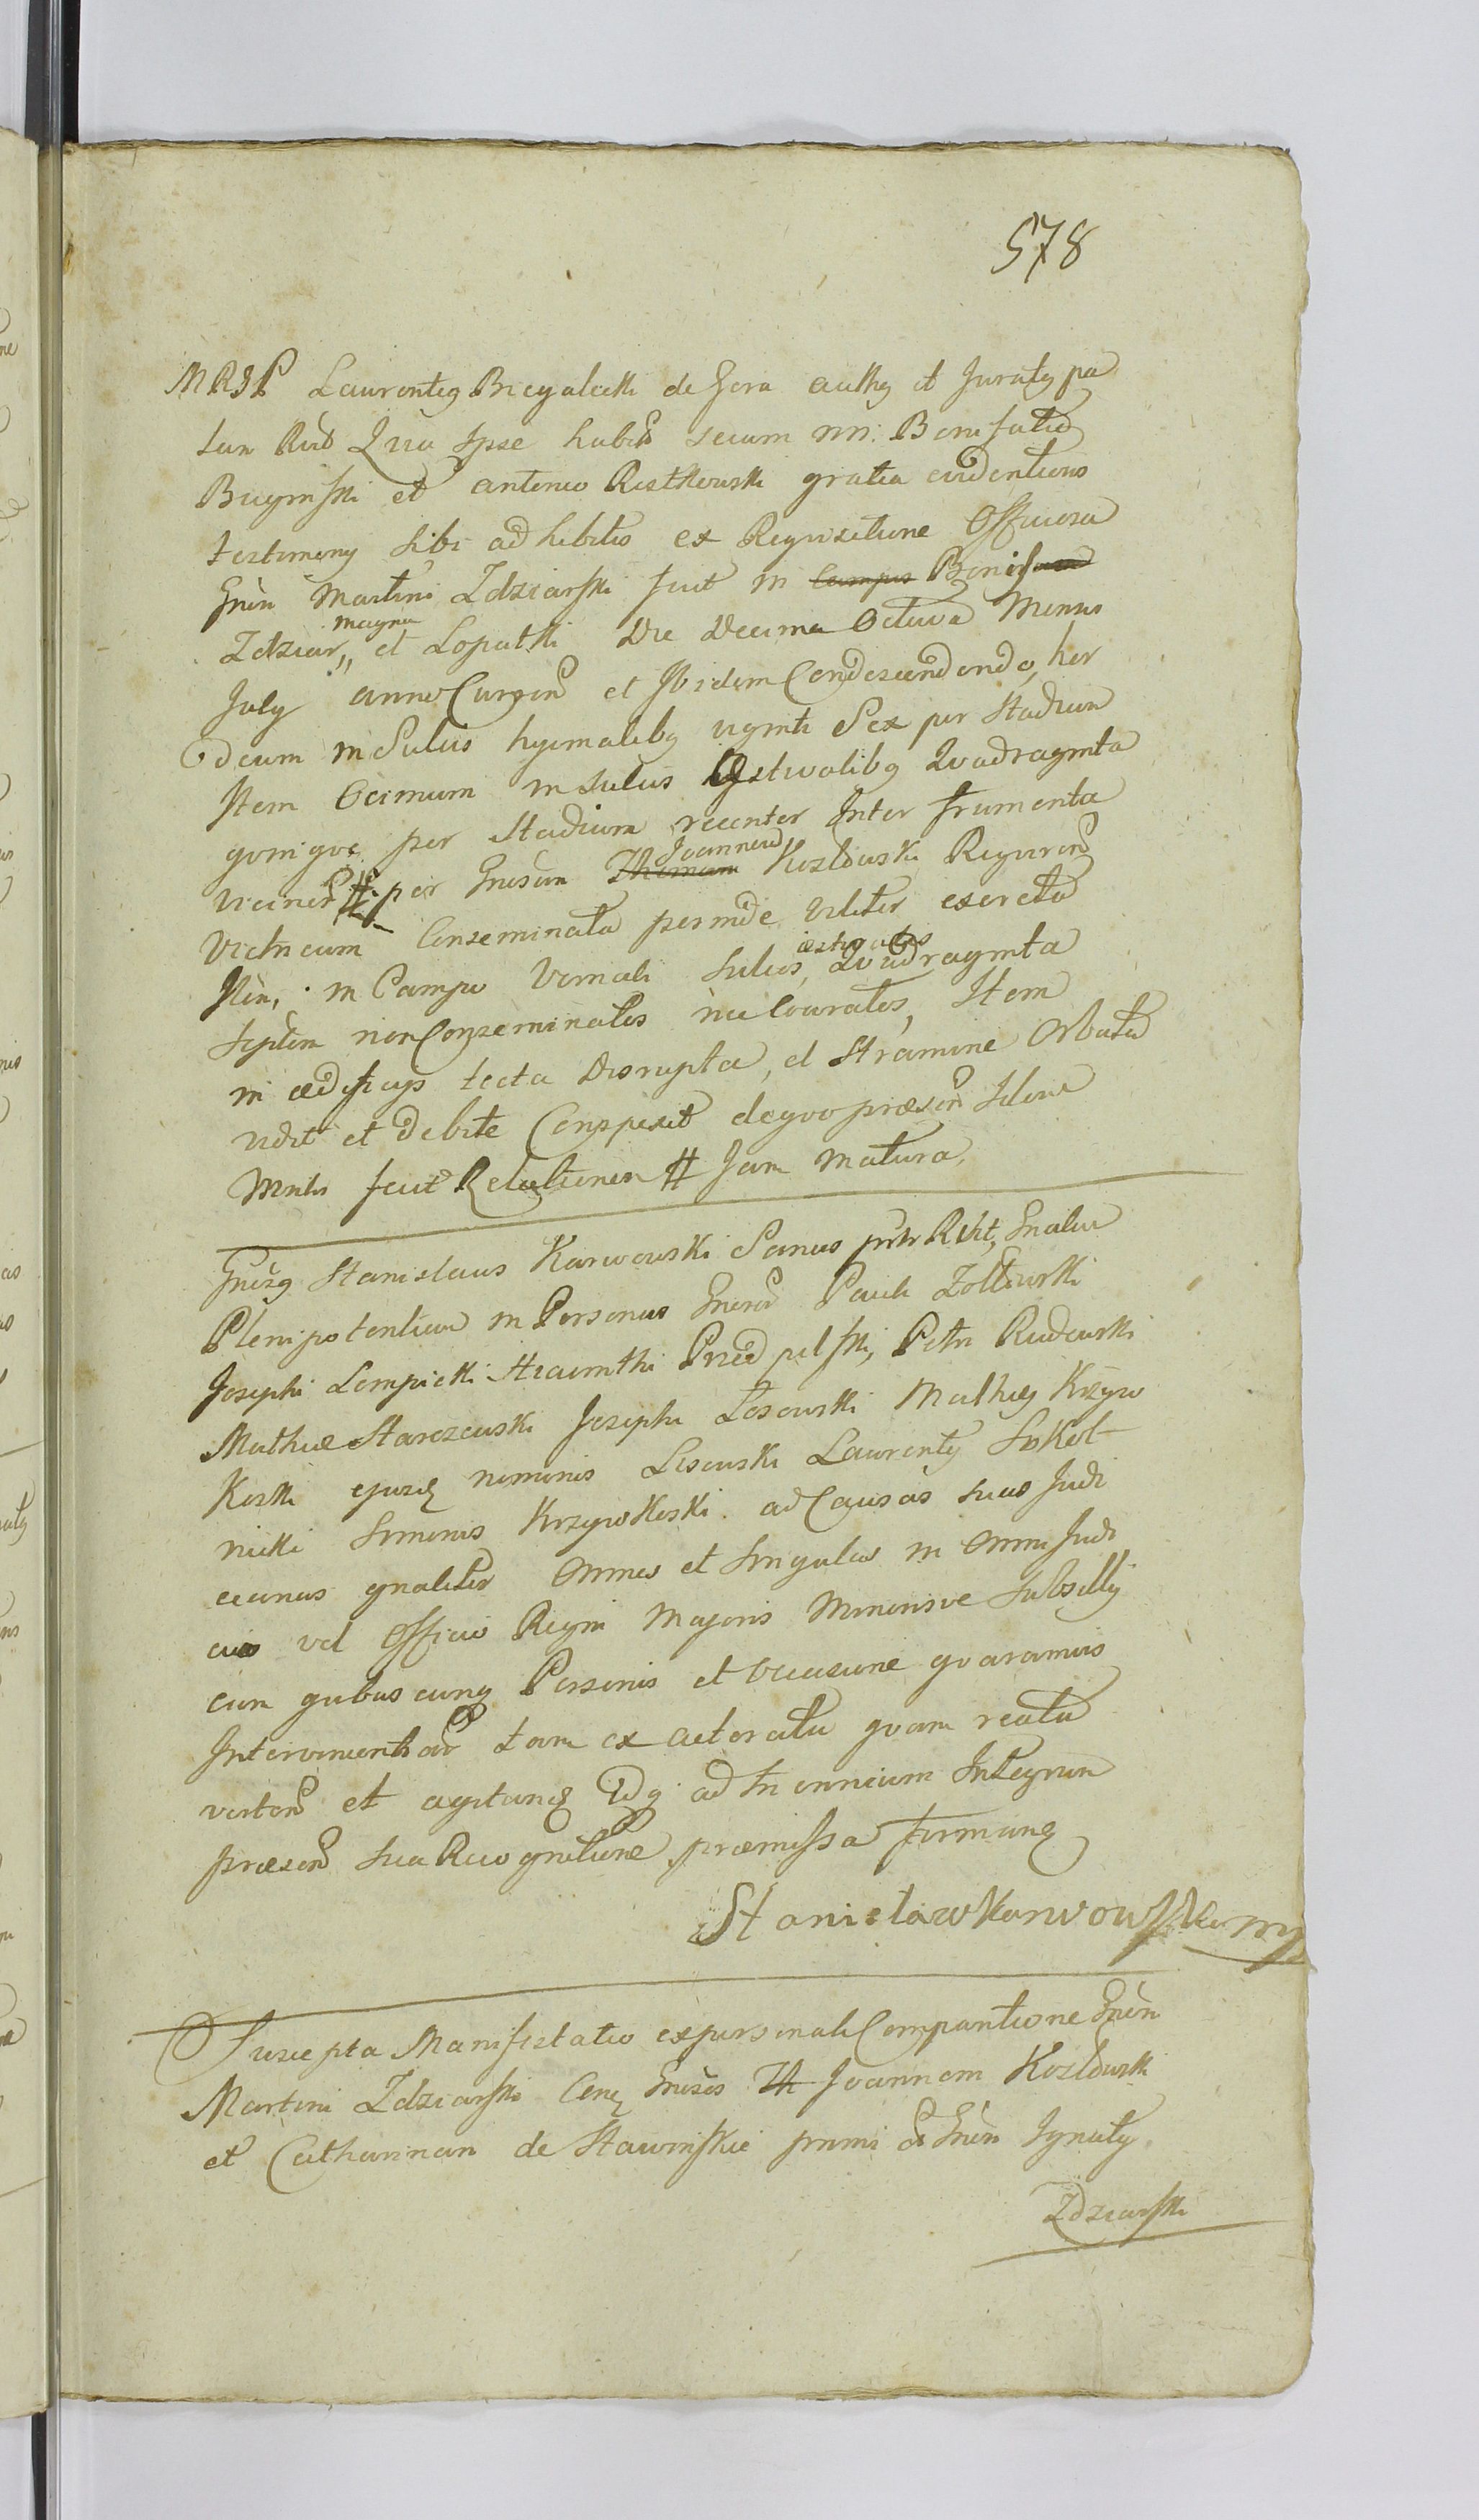 578
MRSP Laurentey Bieyalecki de Gora authey et Juratey pa
lam Rvit Qvia Ipse habit secum nn: Bonifatio
Buyniski et antonio Rostkowski gratia evidentioris
testimony sibi adhibitis ex Requisitione Officiosa
Gnēn Martini Zdziarski fuit in Campis Bonis
Zdziar, magna et Lopatki Die Decima Octava Mensis
July anno Curren et Ibidem Condescendendo, hor
deum in Sulcis hyemaliby viginti Sex per Stadium
Item Ocimum in sulcis Æstivaliby Qvadraginta
qvinqve per Stadium recenter Inter frumenta
# per Gnosum Thomam Joannem Kozlowski Reqviren
Victū eum Conseminata perinde viliter exercita
Itēn, in Campo Vernali sulcos, æstivales Qvadraginta
Septem non Conseminatos nec Coaratos, Item
in ædificijs tecta Disrupta, et Stramine Orbata
vidit et debite Conspexit deqvo præsen Idone
Mntis fecit Relationem # Jam Matura
Gnosy Stanislaus Karwowski Sanus Rvit, Gnalem
Plenipotentiam in Personas Gnoror Pauli Zoltowski
Josephi Lempicki Hiacinthi Przedpelski, Petri Rudowski
Mathiæ Starczewski Josephi Losowski Mathiey Krzywo
Koski ejusdē nominis Lisowski Laurenty Sokol
nicki Simonis Krzywokoski. ad Causas suas Judi
ciarias gnaliter Omnes et Singulas in Omni Judi
cio vel Officio Regni Majoris Minorisve Subselly
cum qvibuscunq Personis et Occasione qvaramvis
Intervenientiar tam ex actoratu qvam reatu
verten et agitandē Idq ad trienneium Integrum
præsen sua Recognitione præmissa firmandē
Stanislaw Karwowski mp
Suscepta Manifestatio ex personali Comparitione Gnēn
Martini Zdziarski Conē Gnosos Th Joannem Kozlowski
et Catharinam de Stawiskie primi Gnēn Ignaty
Zdziarski